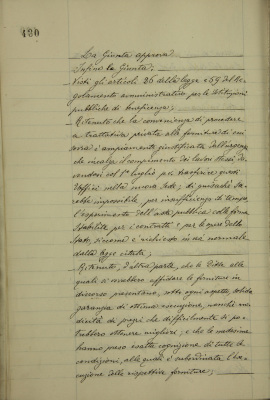 420
La Giunta approva
Infine la Giunta;
Visti gli articoli 26 della legge e 59 del Re-
golamento amministrativo per le Istituzioni
pubbliche di beneficenza;
Ritenuto che la convenienza di procedere
a trattativa privata alle forniture di cui
sovra è ampiamente giustificata dall'urgenza
che incalza il compimento dei lavori
dal 1° luglio p.v. trasferire quegli
Uffici nella nuova Sede; di guisachè sa-
rebbe impossibile, per insufficienza di tempo,
l'esperimento dell'asta pubblica colle forme
stabilite per i contratti e per le spese dello
Stato, siccome è richiesto in via normale
dalla legge citata;
Ritenuto, d'altra parte, che le Ditte alle
quali si vorrebbero affidare le forniture in
discorso presentano, sotto ogni aspetto, solida
garanzia di ottima esecuzione, nonchè mo-
dicità di prezzi che difficilmente si po-
trebbero ottenere migliori; e che le medesime
hanno preso esatta cognizione di tutte le
condizioni, alle quali è subordinata l'ese-
cuzione delle rispettive forniture;